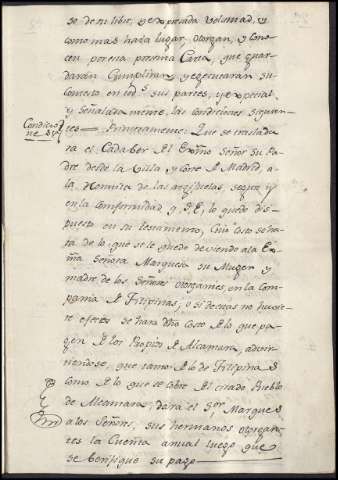 se de su libre, y expresada voluntad, y
como mas haia lugar, otorgan, y cono-
cen por esta presente Carta, que guar-
daràn Cumpliràn y egecutaràn su
contexto en tods sus partes, y especial
y señaladamente, las condiciones siguien-
Condicio-
nes
tes Primeramente: Que se traslada-
ra el Cadaber del Exmo Señor su Pa-
dre desde la Villa, y Corte de Madrid, a
la Hermita de las segun y
en la conformidad q. S.E. lo quedo dis-
puesto en su testamento, Cuio costo se ha-
ra de lo que se le quede deviendo à la Ex-
ma Señora Marquesa su Muger y
madre de los Señores otorgantes, en la Com-
pañia de Filipinas, y si de mas no huvie-
re efectos se hara dho costo de lo que pa-
gen de los Propios de Alcantara, advir-
tiendose, que tanto de lo de Filipinas
como de lo que se cobre del citado Pueblo
de Alcantara, darà el Sor Marques
a los Señores, sus hermanos otorgan-
tes la Cuenta anual luego que
se berifique su pago